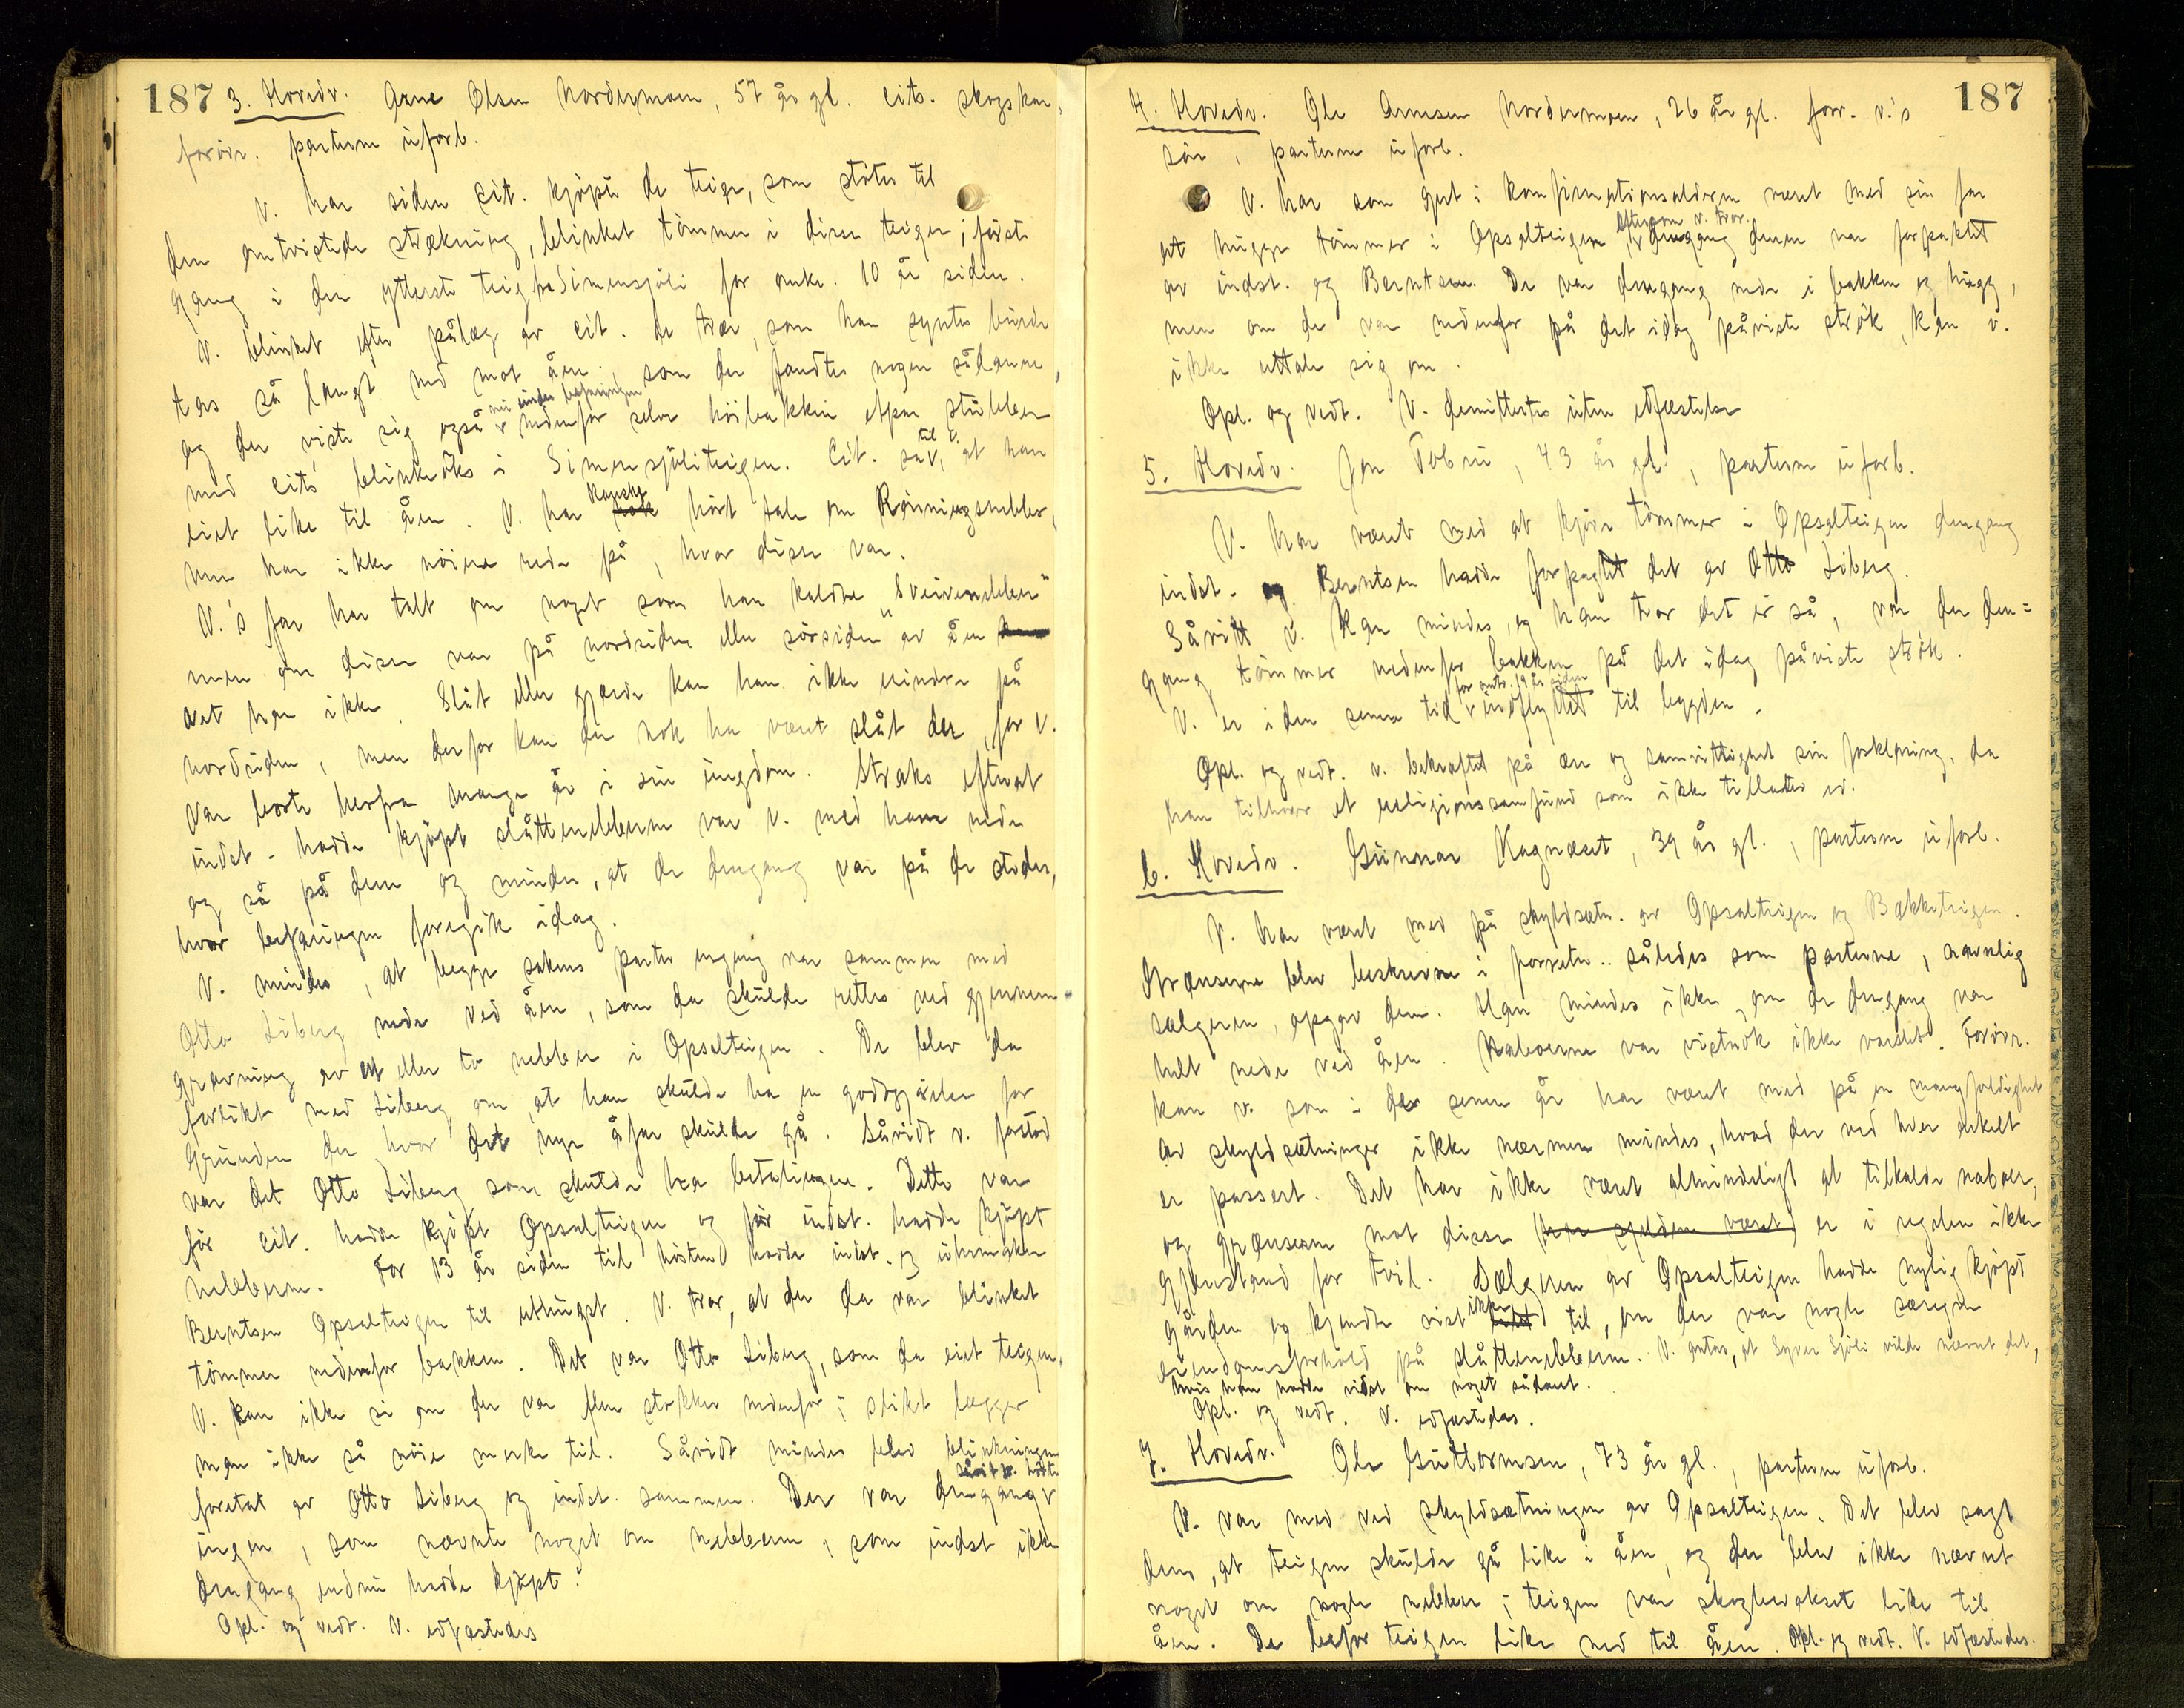 187 3. Hovedv. Arne Olsen Nordermoen, 57 år gl. cits. skogskar,
forøvr. parterne uforb.
V. har siden cit. kjøpte de teiger, som støter til
den omtvistede strækning, blinket tømmer i disse teiger; første
gang i den ytterste teig fra Simensjøli for omkr. 10 år siden.
V. blinket efter pålæg av cit. de trær, som han syntes burde
tas så langt ned mot åen, som der fandtes nogen sådanne,
og der viste sig også nu under befaringen nedenfor selve höibakken stubber
med cits blinkeøks i Simensjøliteigen. Cit. sa til v. at han
eiet like til åen. V. har kanske hørt tale om Rønningsnebber,
men har ikke nøiere rede på, hvor disse var.
V.'s far har talt om noget som han kaldte "Sveivenebber"
men om disse var på nordsiden eller sørsiden av åen
vet han ikke. Slåt eller gjærde kan han ikke mindes på
nordsiden, men derfor kan der nok ha været slåt der, for v.
var borte herfra mange år i sin ungdom. Straks efterat
indst. hadde kjøpt slåttenebberne var v. med ham nede
og så på dem og mindes, at de dengang var på de steder,
hvor befaringen foregik idag.
V. mindes, at begge sakens parter engang var sammen med
Otto Liberg nede ved åen, som da skulde rettes ved gjennem-
gravning av et eller to nebber i Opsalteigen. De blev da
forlikt med Liberg om, at han skulde ha en godtgjørelse for
grunden der hvor det nye åfar skulde gå. Såvidt v. forstod
var det Otto Liberg som skulde ha betalingen. Dette var
før cit. hadde kjøpt Opsalteigen og før indst. hadde kjøpt
nebberne. For 13 år siden til høsten hadde indst. og
Berntsen Opsalteigen til uthugst. V. tror, at der da var blinket
tømmer nedenfor bakken. Det var Otto Liberg, som da eiet teigen.
V. kan ikke si om der var flere stokker nedenfor; slikt lægger
man ikke så nøie merke til. Såvidt mindes blev blinkningen
foretat av Otto Liberg og indst. sammen. Der var dengang såvidt v. hørte
ingen, som nævnte noget om nebberne, som indst ikke
dengang endnu hadde kjøpt.
Opl. og vedt. V. edfæstedes
187
4. Hovedv. Ole Arnesen Nordermoen, 26 år gl. forr. v.'s
søn, parterne uforb.
V. har som gut i konfirmationsalderen været med sin far
at hugge tømmer i Opsalteigen, eftersom v. tror dengang denne var forpaktet
av indst. og Berntsen. De var dengang nede i bakken og hugg,
men om de var nedenfor på det idag påviste strøk, kan v.
ikke uttale sig om.
Opl. og vedt. V. demittertes uten edfæstelse
5. Hovedv. Jon, 43 år gl., parterne uforb.
V. har været med at kjøre tømmer i Opsalteigen dengang
indst. og Berntsen hadde forpagtet det av Otto Liberg.
Såvidt v. kan mindes, og han tror det er så, var der den=
gang tømmer nedenfor bakken på det idag påviste strøk.
V. er i den senere tid for omtr. 19 år siden indflyttet til bygden.
Opl. og vedt. v. bekræftet på ære og samvittighet sin forklaring, da
han tilhører et religionssamfund som ikke tillater ed.
6. Hovedv. Gunnar Kagnæset, 39 år gl., parterne uforb.
V. har været med på skyldsætn. av Opsalteigen og Bækketeigen.
Grænserne blev beskrevne i forretn. således som parterne, navnlig
sælgeren, opgav dem. Han mindes ikke, om de dengang var
helt nede ved åen. Naboerne var vistnok ikke varslet. Forøvr.
kan v. som i de senere år har været med på en mangfoldighet
av skyldsætninger ikke nærmere mindes, hvad der ved hver enkelt
er passert. Det har ikke været almindeligt at tilkalde naboer,
og grænserne mot disse (har sjelden været) er i regelen ikke
gjenstand for tvil. Sælgeren av Opsalteigen hadde nylig kjøpt
gården og kjendte vist ikke til, om der var nogle særegne
eiendomsforhold på slåttenebberne. V. antar, at Syver Sjöli vilde nævnt det,
hvis han hadde vidst om noget sådant.
Opl. og vedt. V. edfæstedes.
7. Hovedv. Ole Guttormsen, 73 år gl., parterne uforb.
V. var med ved skyldsætningen av Opsalteigen. Det blev sagt
dem, at teigen skulde gå like i åen, og der blev ikke nævnt
noget om nogle nebber; teigen var skogbevokset like til
åen. De befor teigen like ned til åen. Opl. og vedt. V. edfæstedes.